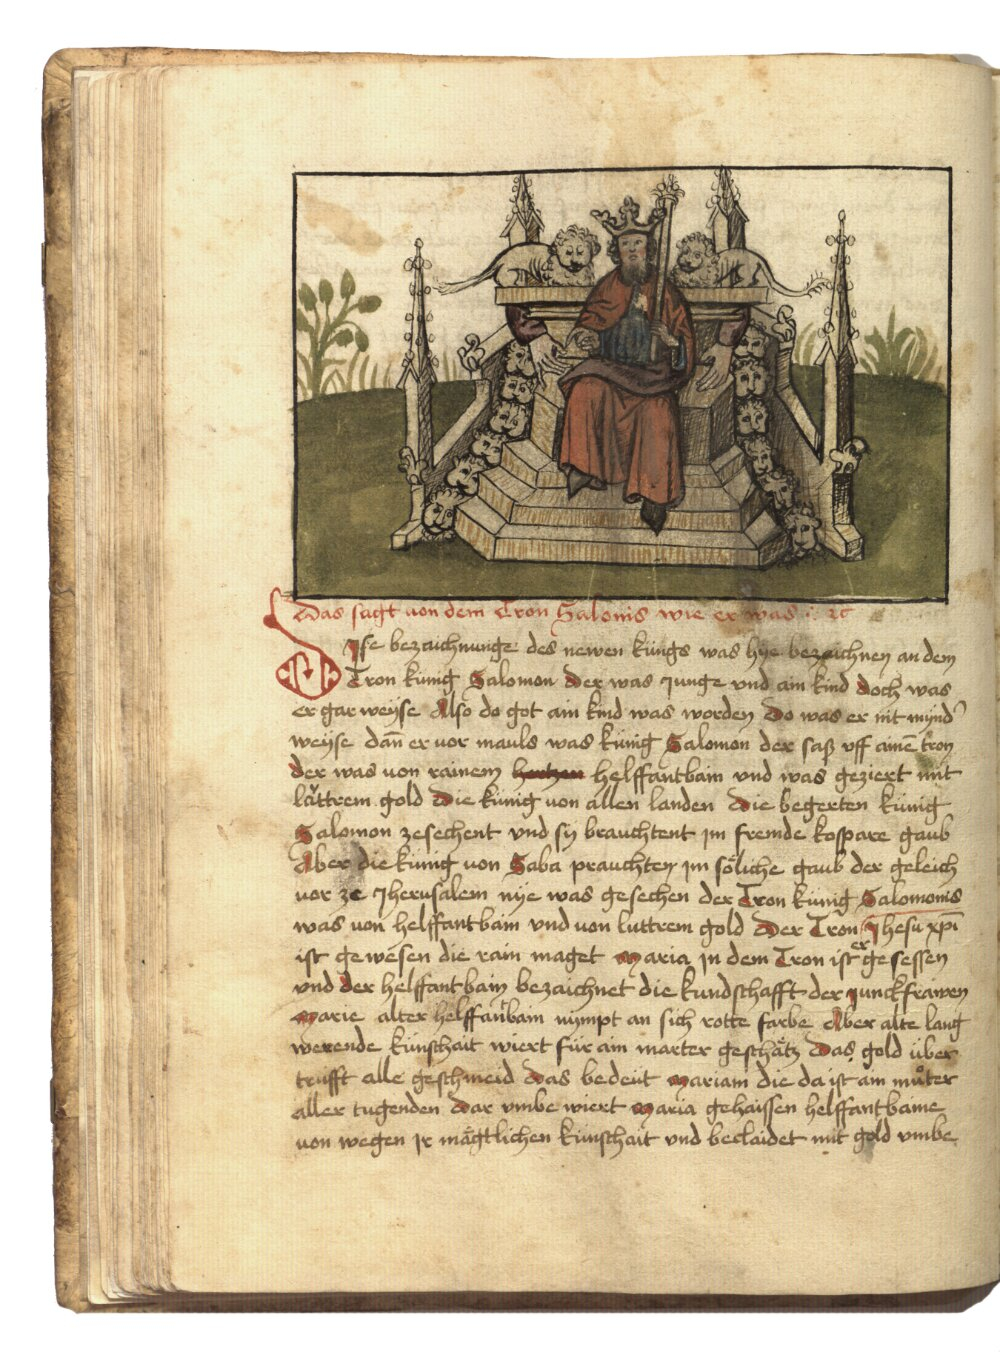 Das sagt von dem Tron Salonis wie er was : ꝛc
Dise bezaichnunge des newen küngs was hye bezaichnen an dem
Tron künig Salomon Der was Junge vnd ain kind doch was
er gar weyse Also do got ain kind was worden Do was er nit mynd'
weyse dañ er vor mauls was künig Salomon der saß vff ainē tron
der was von rainem hertzen helffantbain vnd was geziert mit
lúttrem gold Die künig von allen landen Die begerten künig
Salomon zesechent vnd sy brauchtent jm fremde kospare gaub
Aber die künig von Saba prauchten jm söliche gaub der geleich
vor ze Jherusalem nye was gesechen der Tron künig Salomonis
was von helffantbain vnd von luttrem gold Der Tron Jhesu xp̄i
ist gewesen die rain maget Maria Jn dem Tron ist er gesessen
vnd Der helffantbain bezaichnet die kundschafft der junckfrawen
Marie alter helffantbain nympt an sich rotte farbe Aber alte lang
werende künschait wiert für ain marter geschätz Das gold über
trifft alle geschmeid Das bedeüt Mariam die da ist ain můter
aller tugenden Dar vmbe wiert Maria gehaissen helffantbaine
von wegen jr mägtlichen künschait vnd beclaidet mit gold vmbe